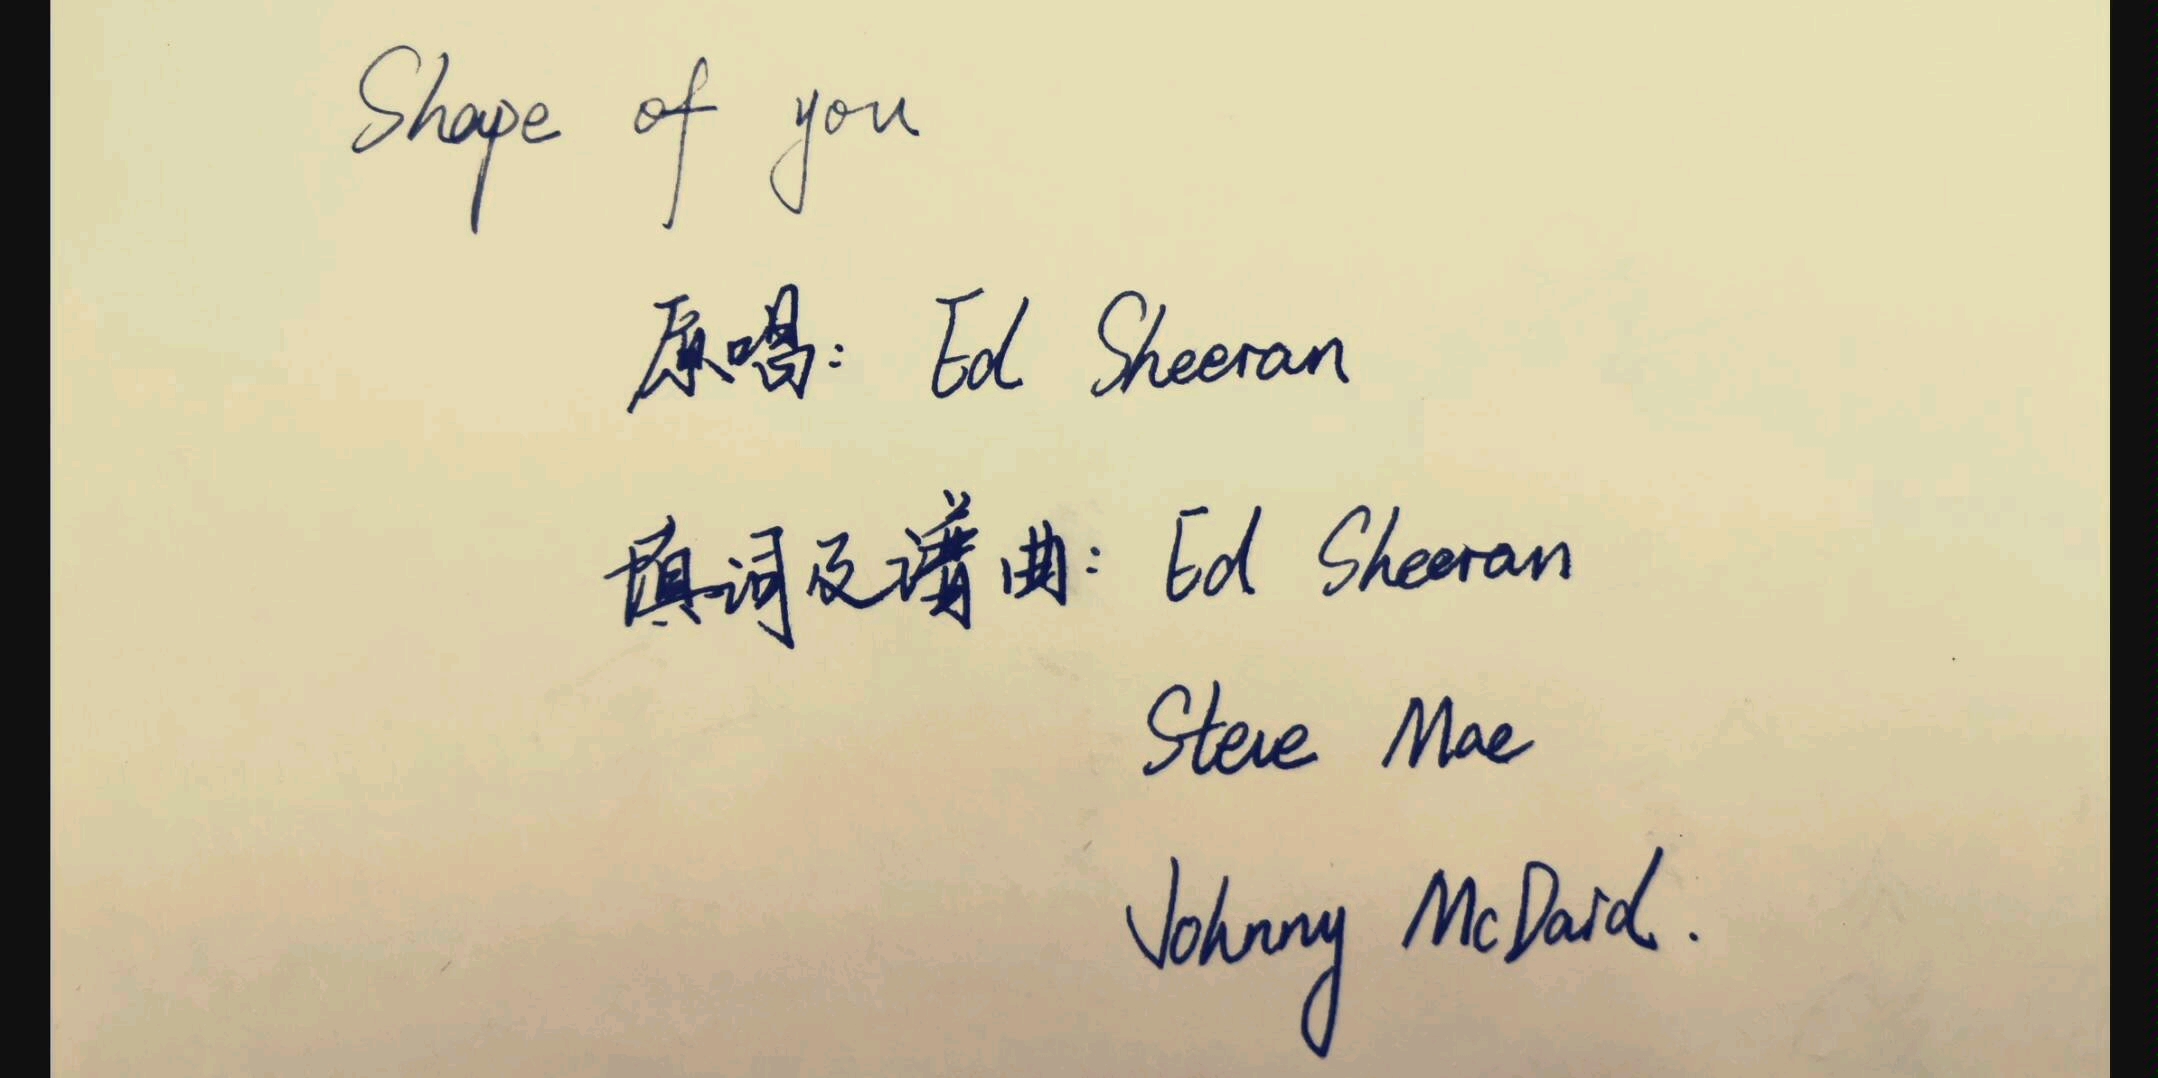 Shape of you
原唱: Ed Sheeran
填词及谱曲: Ed Sheeran
Steve Mae
Johnny McDaid.